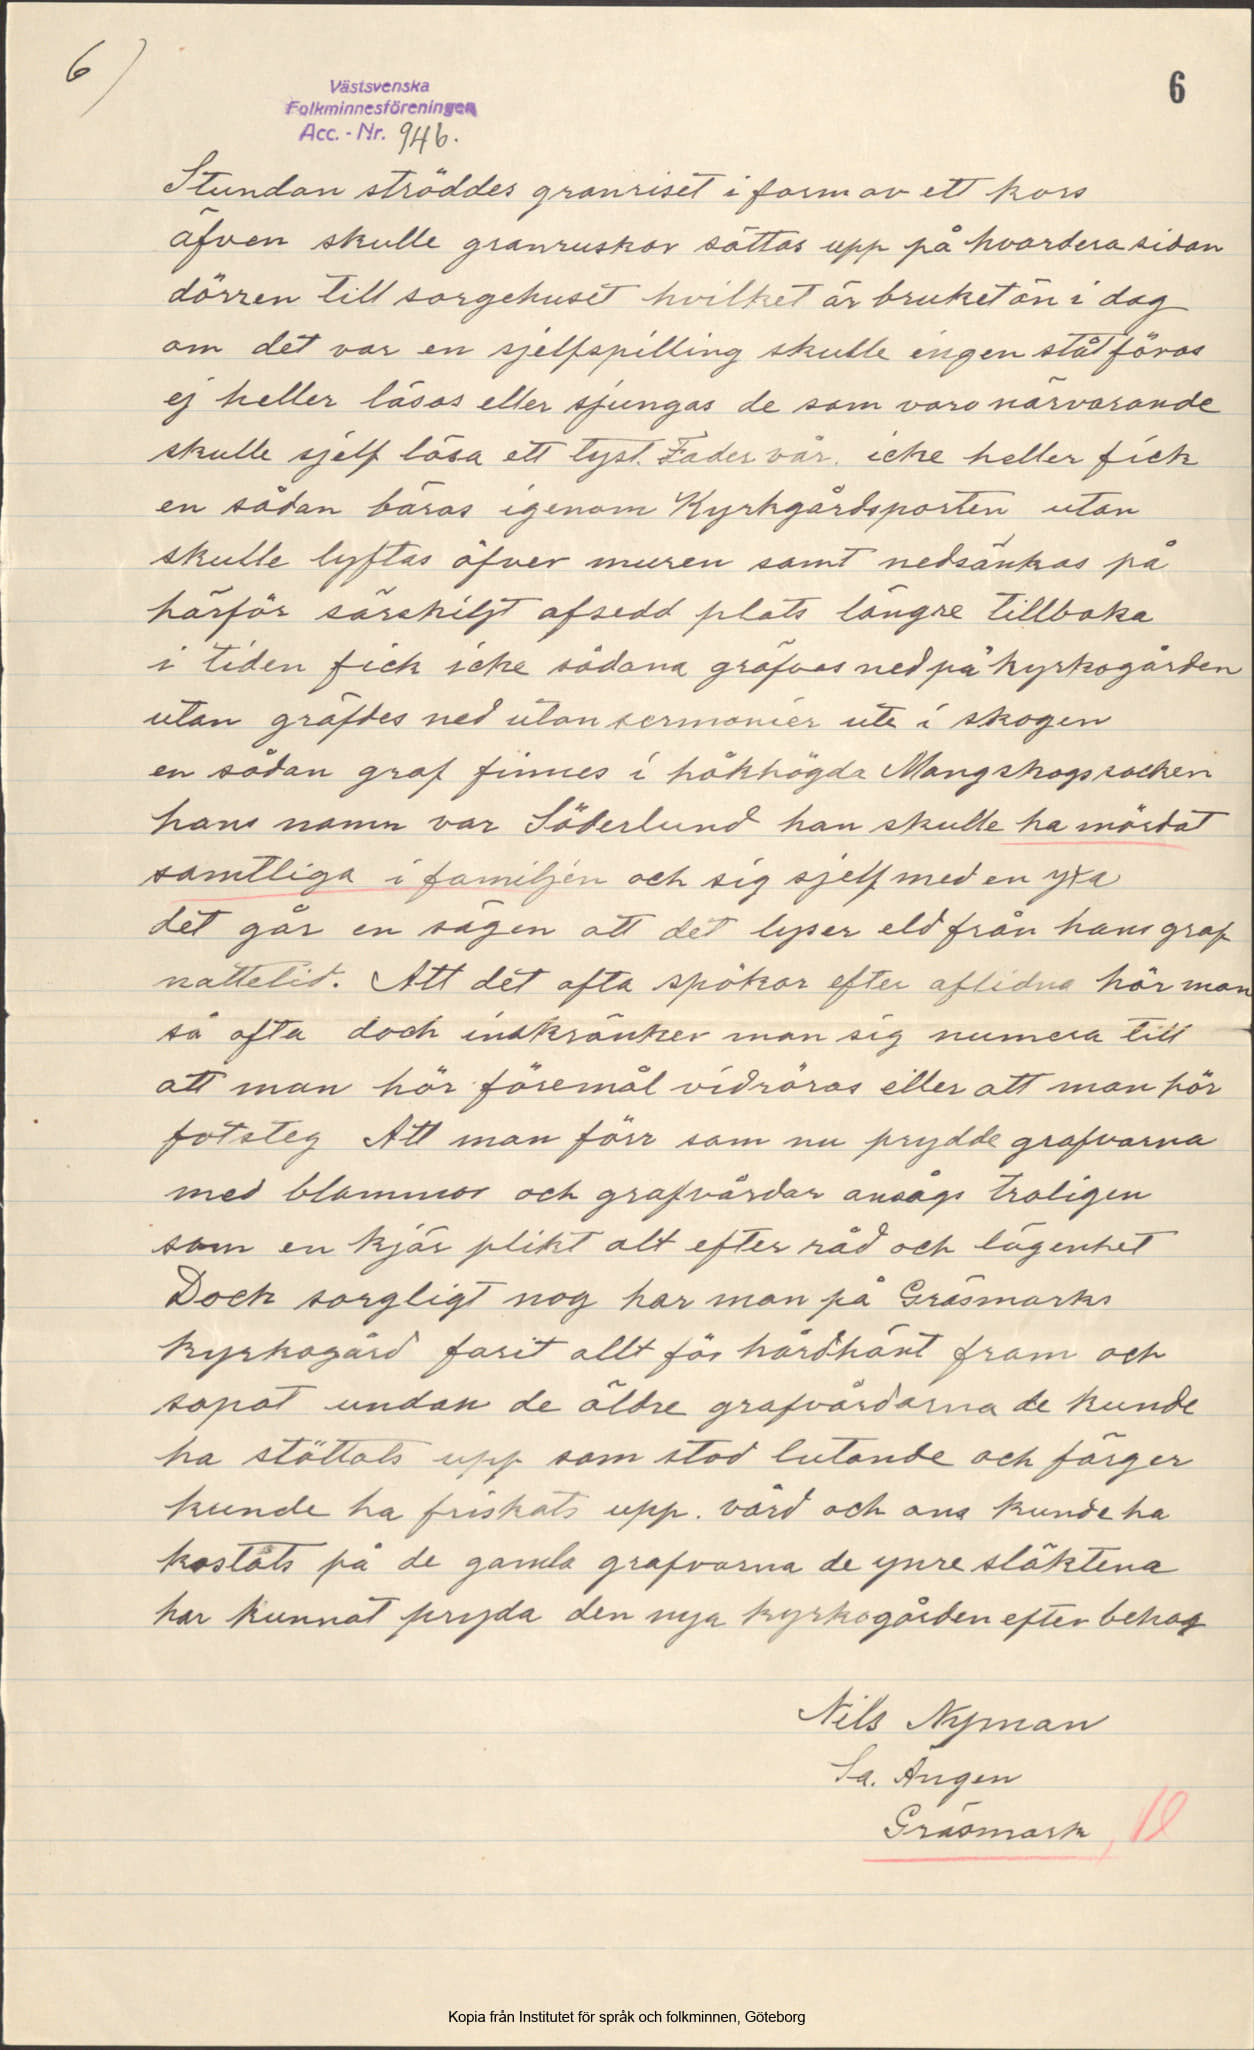 6)
6
Västsvenska
Folkminnesföreningen
Acc. - Nr. 946.
Stundan ströddes granriset i form av ett kors
äfven skulle granruskor sättas upp på hvardera sidan
dörren till sorgehuset hvilket är bruket än i dag
om det var en sjelfspilling skulle ingen ståt föras
ej heller läsas eller sjungas de som voro närvarande
skulle sjelf läsa ett tyst. Fader vår. icke heller fick
en sådan bäras igenom Kyrkgårdsporten utan
skulle lyftas öfver muren samt nedsänkas på
härför särskilft afsedd plats längre tillbaka
i tiden fick icke sådana gräfvas ned på kyrkogården
utan gräfdes ned utan sermonier ute i skogen
en sådan graf finnes i håkhögda Mangskogs socken
hans namn var Söderlund han skulle ha mördat
samtliga i familjen och sig sjelf med en yxa
det går en sägen att det lyser eld från hans graf
nattetid. Att det ofta spökar efter aflidna hör man
så ofta doch inskränker man sig numera till
att man hör föremål vidröras eller att man hör
fotsteg Att man förr som nu prydde grafvarna
med blommor och grafvårdar ansågs troligen
som en kjär plikt alt efter råd och lägenhet
Dock sorgligt nog har man på Gräsmarks
kyrkogård farit allt för hårdhänt fram och
sopat undan de äldre grafvårdarna de kunde
ha stöttats upp som stod lutande och färger
kunde ha friskats upp. vård och ans kunde ha
kostats på de gamla grafvarna de ynre släktena
har kunnat pryda den nya kyrkogården efter behag
Nils Nyman
Sa. Ängen
Gräsmark,
Kopia från Institutet för språk och folkminnen, Göteborg